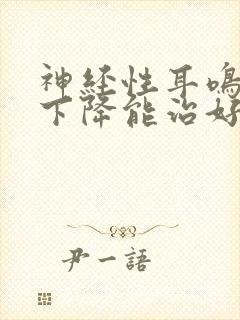 神经性耳鸣
下降能治好
尹一語